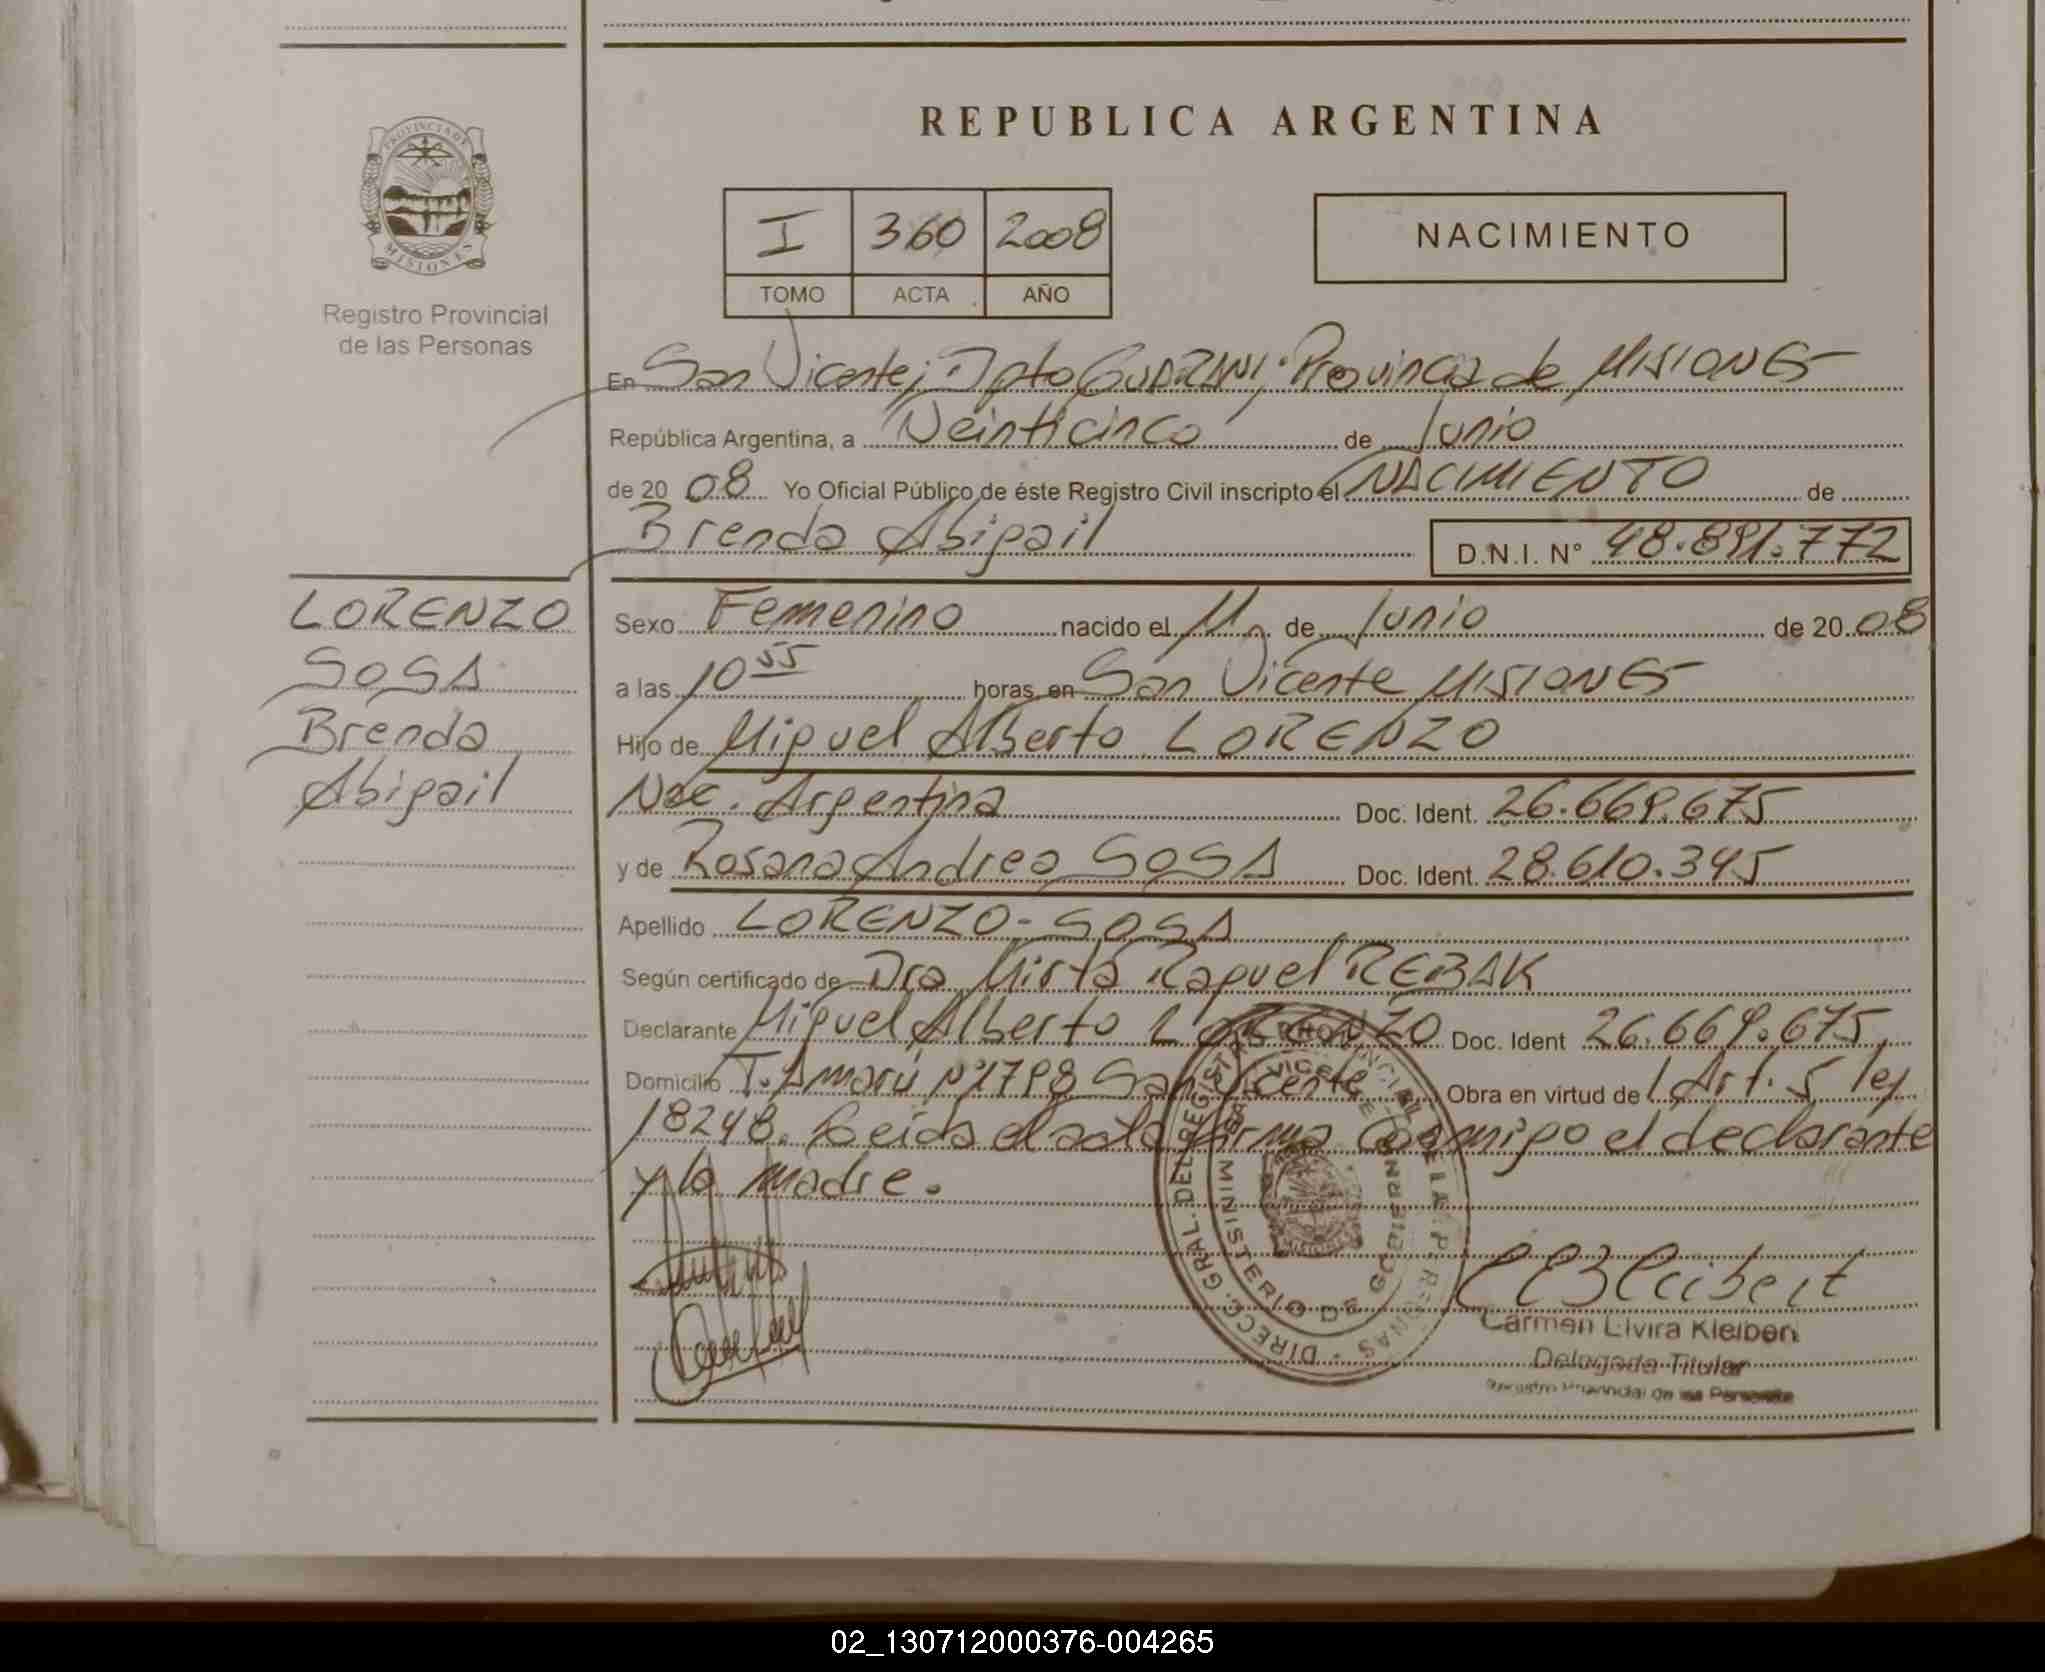 REPUBLICA ARGENTINA
PROVINCIA DE
MISIONES
Registro Provincial
de las Personas
I 360 2008
TOMO ACTA AÑO
NACIMIENTO
En San Vicente; Dpto GUARANI; Provincia de MISIONES
República Argentina, a Veinticinco de Junio
de 20 08 Yo Oficial Público de éste Registro Civil inscripto el NACIMIENTO de
Brenda Abigail D.N.I. N° 48.891.772
LORENZO
SOSA
Brenda
Abigail
Sexo Femenino nacido el 11 de Junio de 20 08
a las 10 55 horas, en San Vicente MISIONES
Hijo de Miguel Alberto LORENZO
Nac. Argentina Doc. Ident. 26.669.675
y de Rosana Andrea SOSA Doc. Ident. 28.610.345
Apellido LORENZO-SOSA
Según certificado de Dra Mirta Raquel REBAK
Declarante Miguel Alberto LORENZO Doc. Ident 26.669.675
Domicilio T. Amarú Nº1798 San Vicente Obra en virtud de Art. 5 ley
18248. Leida el acta firma conmigo el declarante
y la madre.
DIRECC. GRAL. DEL REGISTRO PROVINCIAL DE LAS PERSONAS
MINISTERIO DE GOBIERNO
SAN VICENTE
MISIONES
Carmen Elvira Kleibert
Delegada Titular
Registro Provincial de las Personas
02_130712000376-004265